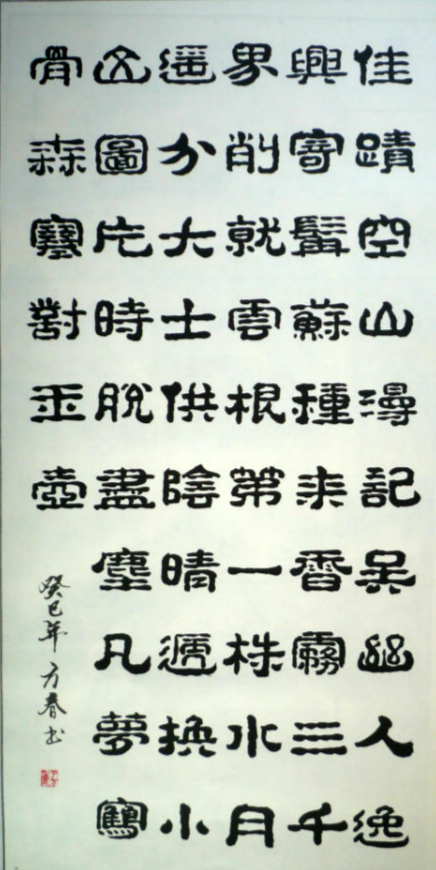 佳蹟空山漫記吳幽人逸
興寄髯蘇種來香霧三千
界削就雲根第一株水月
遥分大士供陰晴遞換小
山圖片時脫盡塵凡夢鶴
骨森寒對玉壺
癸巳年方春书